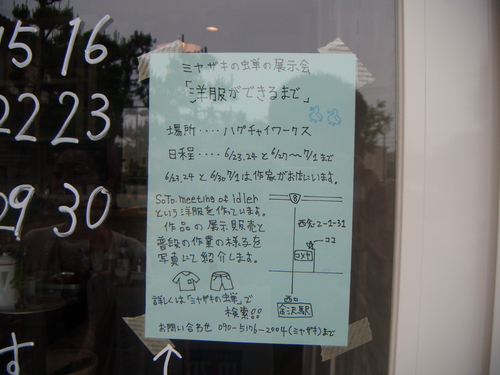 15 16
22 23
29 30
す
ミヤザキの虫単の展示会
「洋服ができるまで」
場所‥‥ハグチャイワークス
日程‥‥6/23.24と6/27〜7/1まで
6/23.24と6/30 7/1は作家がお店にいます。
SoTo. meeting of idler
という洋服を作っています。
作品の展示販売と
普段の作業の様子を
写真にて紹介します。
8
西念2-1-31
ココ
コメヤ
西口
金沢駅
詳しくは「ミヤザキの虫単」で
検索!!
お問い合わせ 090-5176-2904(ミヤザキ)まで